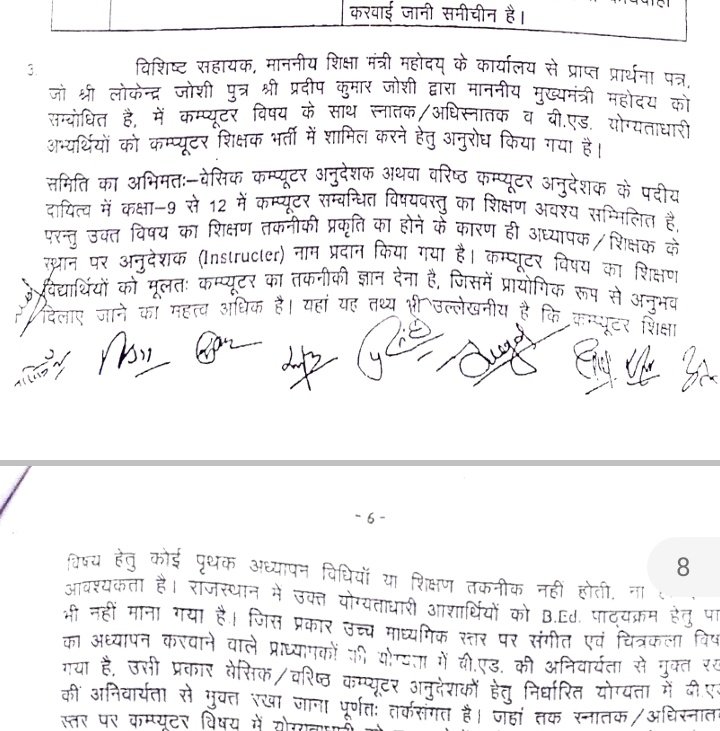 करवाई जानी समीचीन है।
3. विशिष्ट सहायक, माननीय शिक्षा मंत्री महोदय् के कार्यालय से प्राप्त प्रार्थना पत्र,
जो श्री लोकेन्द्र जोशी पुत्र श्री प्रदीप कुमार जोशी द्वारा माननीय मुख्यमंत्री महोदय को
सम्बोधित है, में कम्प्यूटर विषय के साथ स्नातक/अधिस्नातक व बी.एड. योग्यताधारी
अभ्यर्थियों को कम्प्यूटर शिक्षक भर्ती में शामिल करने हेतु अनुरोध किया गया है।
समिति का अभिमतः–बेसिक कम्प्यूटर अनुदेशक अथवा वरिष्ठ कम्प्यूटर अनुदेशक के पदीय
दायित्व में कक्षा–9 से 12 में कम्प्यूटर सम्बन्धित विषयवस्तु का शिक्षण अवश्य सम्मिलित है,
परन्तु उक्त विषय का शिक्षण तकनीकी प्रकृति का होने के कारण ही अध्यापक/शिक्षक के
स्थान पर अनुदेशक (Instructer) नाम प्रदान किया गया है। कम्प्यूटर विषय का शिक्षण
विद्यार्थियों को मूलतः कम्प्यूटर का तकनीकी ज्ञान देना है, जिसमें प्रायोगिक रूप से अनुभव
दिलाए जाने का महत्व अधिक है। यहां यह तथ्य भी उल्लेखनीय है कि कम्प्यूटर शिक्षा
-6-
8
विषय हेतु कोई पृथक अध्यापन विधियों या शिक्षण तकनीक नहीं होती, ना
आवश्यकता है। राजस्थान मे उक्त योग्यताधारी आशार्थियों को B.Ed. पाठ्यक्रम हेतु पा
भी नहीं माना गया है। जिस प्रकार उच्च माध्यमिक स्तर पर संगीत एवं चित्रकला विष
का अध्यापन करवाने वाले प्राध्यापकों की योग्यता में बी.एड. की अनिवार्यता से मुक्त रख
गया है, उसी प्रकार बेसिक/वरिष्ठ कम्प्यूटर अनुदेशकों हेतु निर्धारित योग्यता में बी.ए
की अनिवार्यता से मुक्त रखा जाना पूर्णतः तर्कसंगत है। जहां तक स्नातक/अधिस्नात
स्तर पर कम्प्यूटर विषय में